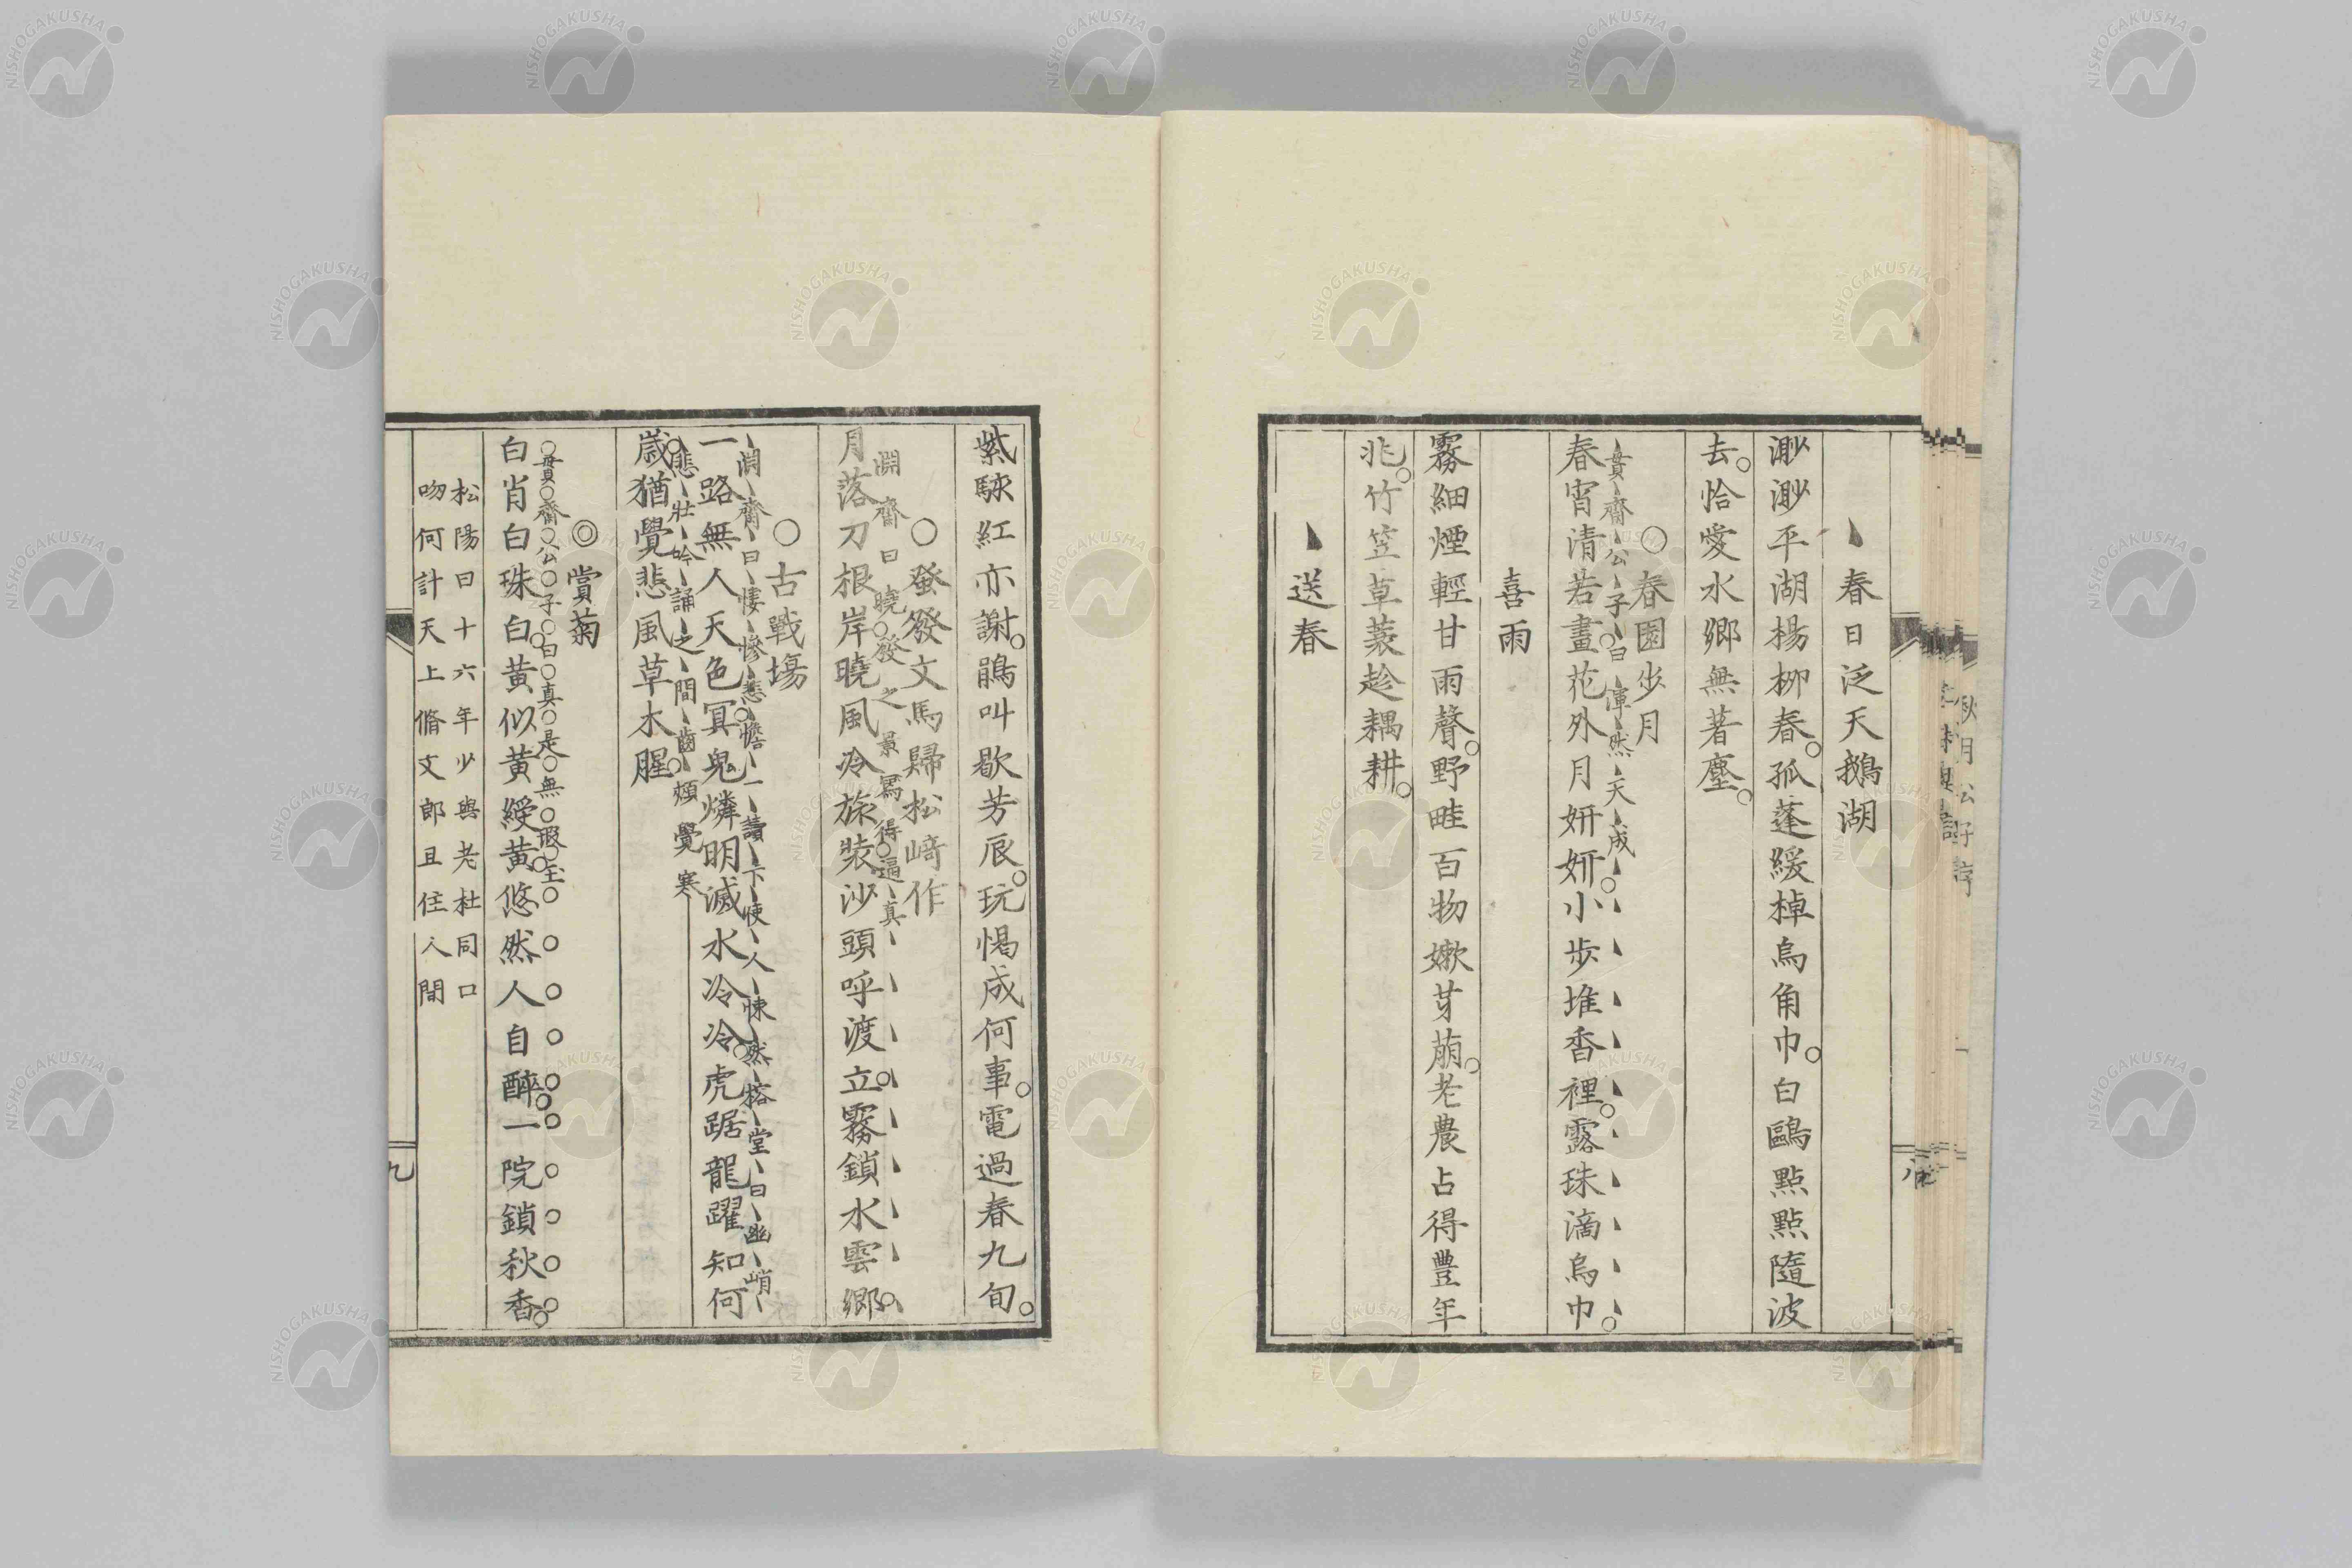 春日泛天鵝湖
渺渺平湖楊柳春。孤蓬緩棹烏角巾。白鷗點點隨波
去。恰愛水鄉無著塵。
○春園步月
貫齋公子曰渾然天成
春宵清若畫花外月妍妍。小步堆香裡。露珠滴烏巾。
喜雨
霧細煙輕甘雨聲。野畦百物嫩芽萠。老農占得豐年
兆。竹笠草蓑趁耦耕。
送春
紫駯紅亦謝。鵑叫歇芳辰。玩愒成何事。電過春九旬。
○發文馬歸松﨑作
淵齋曰曉發之景寫得逼真
月落刀根岸曉風冷旅裝沙頭呼渡立。霧鎖水雲鄉。
○古戰場
淵齋曰悽慘悲憺一讀下使人悚然榕堂曰幽峭
一路無人天色冥。鬼燐明滅水冷冷。虎踞龍躍知何
悲壯吟誦之間齒頰覺寒
歲。猶覺悲風草木腥。
◎賞菊
貫齋公子曰真是無瑕玉
白肖白珠白。黃似黃綬黃。悠然人自醉。一院鎖秋香。
松陽曰十六年少與老杜同口
吻何計天上脩文郎且住人間
九